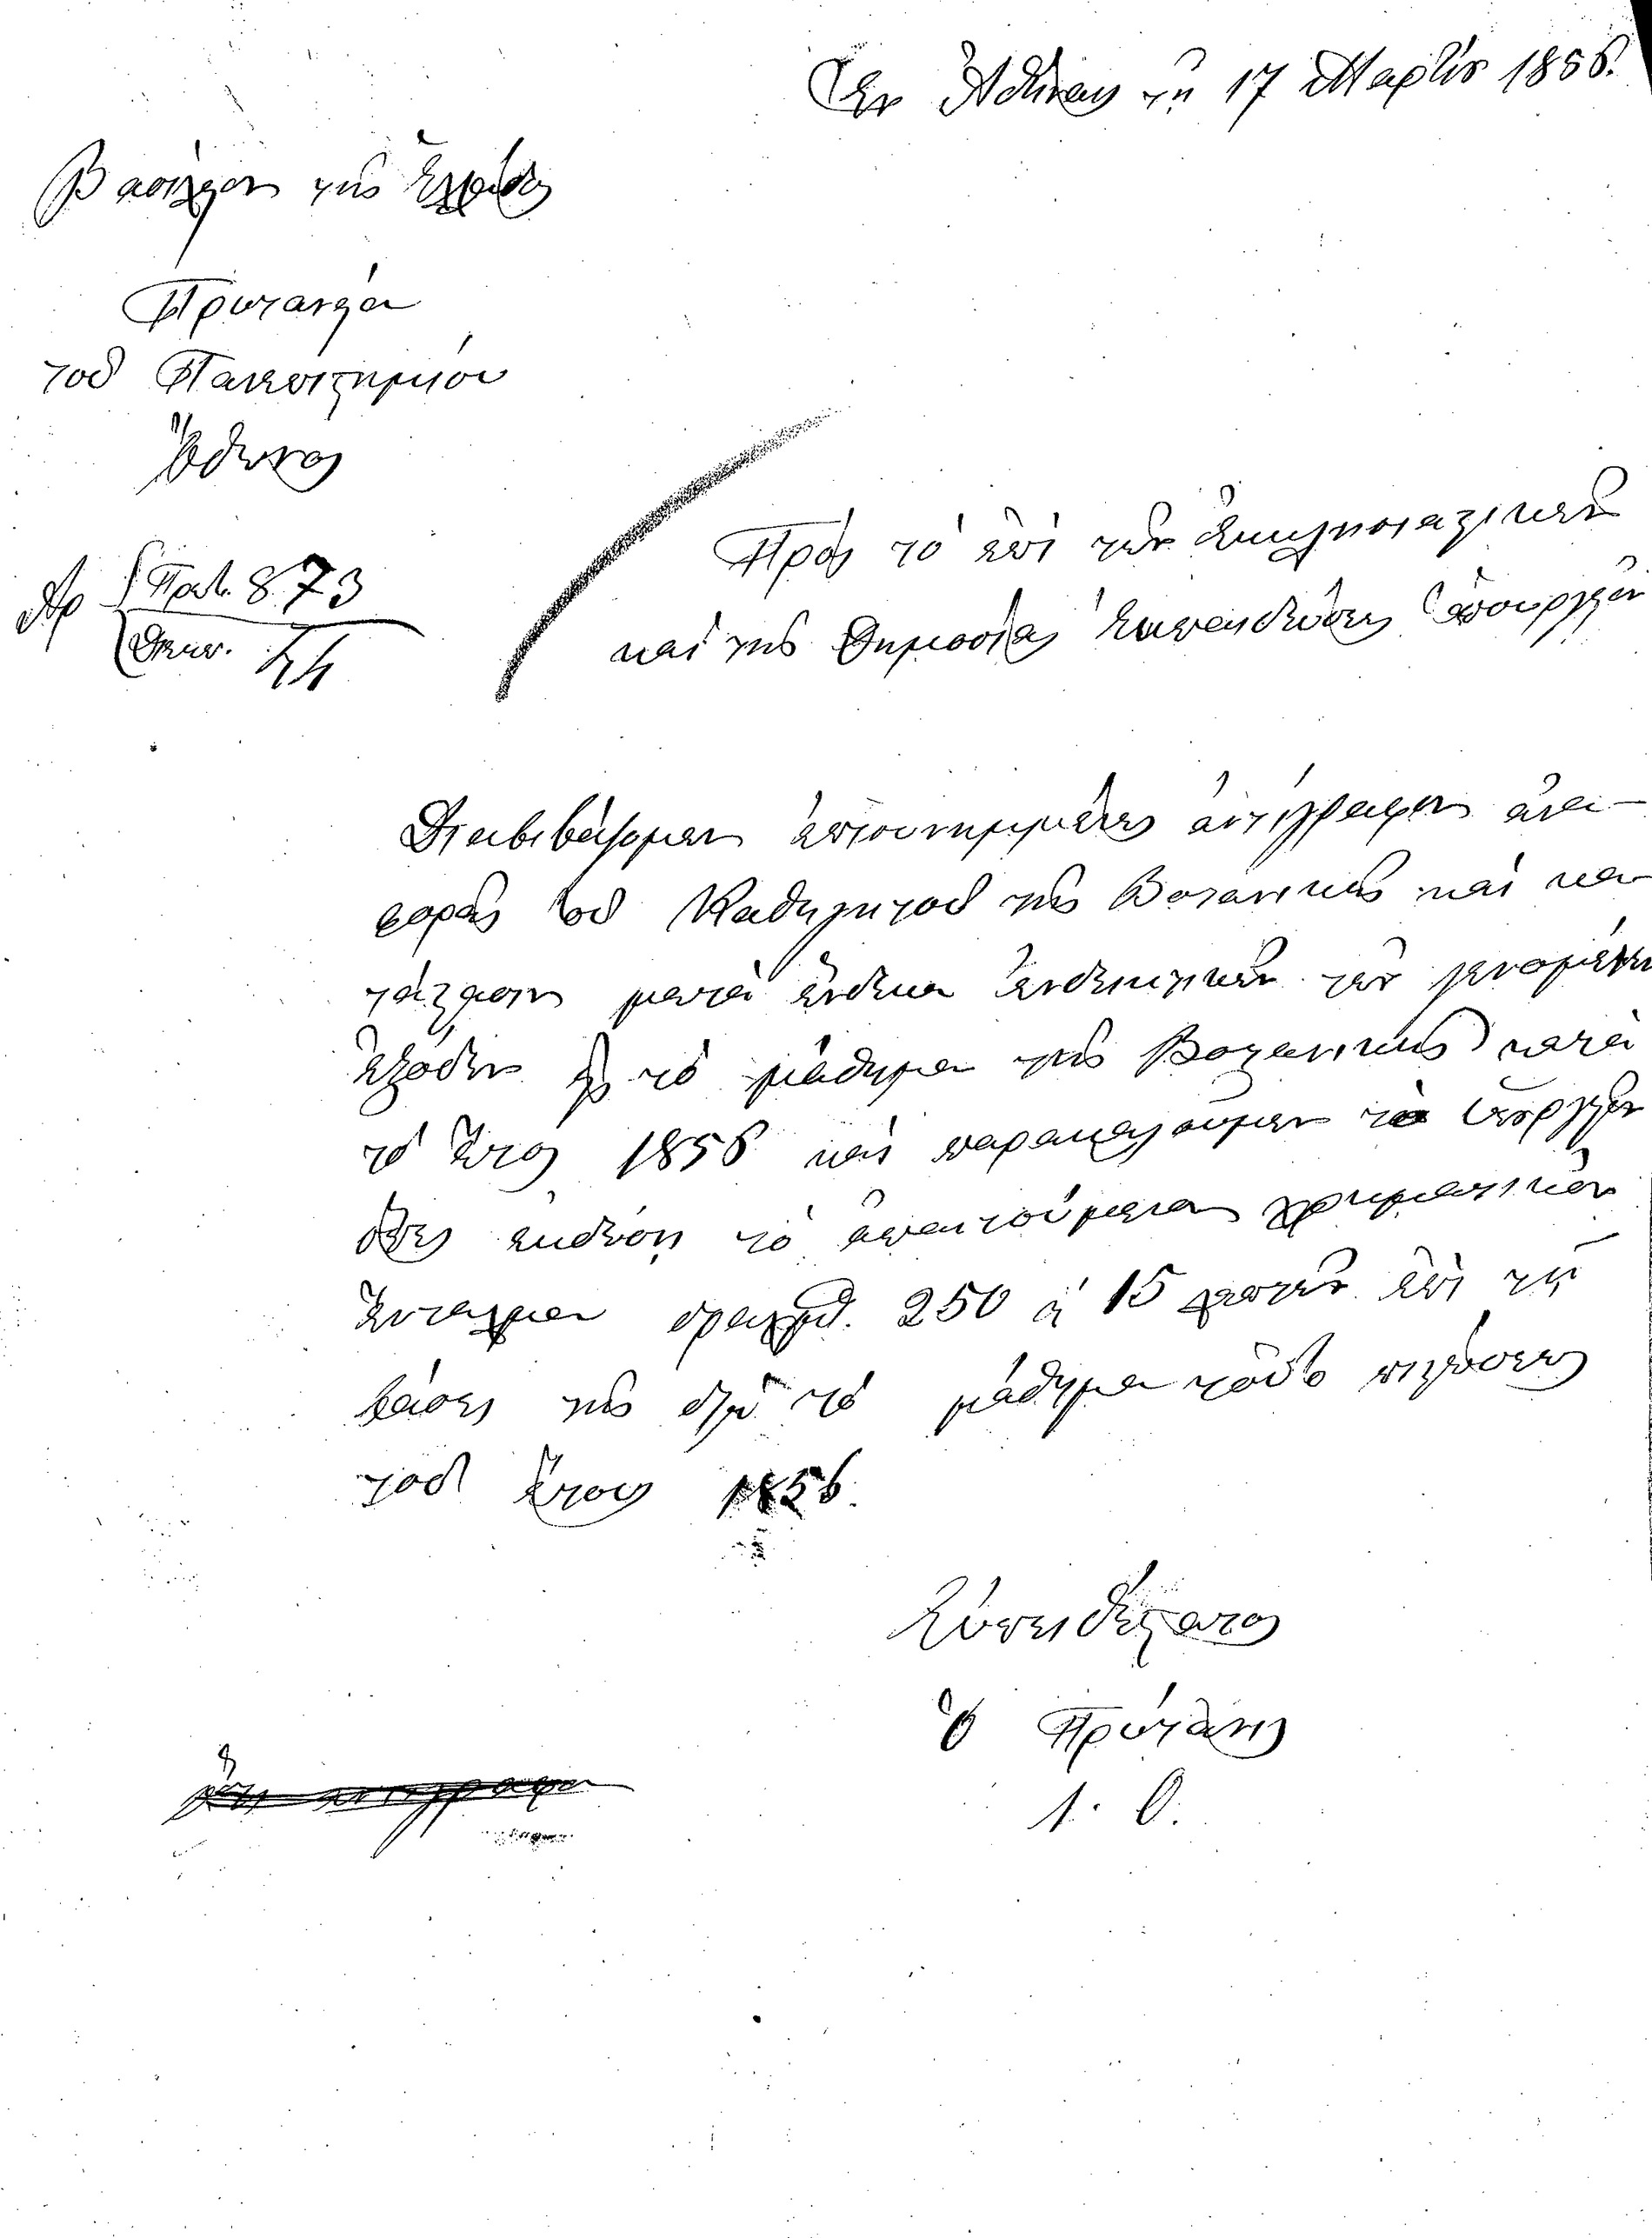 Ἐν Ἀθήναις τῇ 17 Μαρτίου 1856.
Βασίλειον τῆς Ἑλλάδος
Πρυτανεία
τοῦ Πανεπιστημίου
Ὄθωνος
Ἀρ Πρωτ. 873
Διεκπ.
Πρὸς τὸ ἐπὶ τῶν Ἐκκλησιαστικῶν
καὶ τῆς Δημοσίας Ἐκπαιδεύσεως Ὑπουργεῖον
Διαβιβάζομεν ἐπισυνημμένως ἀντίγραφον ἀνα-
φορᾶς τοῦ Καθηγητοῦ τῆς Βοτανικῆς καὶ κα
τάστασιν μετὰ ἕνδεκα ἀποδεικτικῶν τῶν γενομένων
ἐξόδων εἰς τὸ μάθημα τῆς Βοτανικῆς κατὰ
τὸ ἔτος 1856 καὶ παρακαλοῦμεν τὸ Ὑπουργεῖον
ὅπως ἐκδώσῃ τὸ ἀπαιτούμενον χρηματικὸν
ἔνταλμα δραχμῶν 250 & 15 λεπτῶν ἐπὶ τῇ
βάσει τῆς διὰ τὸ μάθημα τοῦτο πιστώσεως
τοῦ ἔτους 1856.
Εὐπειθέστατος
Ὁ Πρύτανις